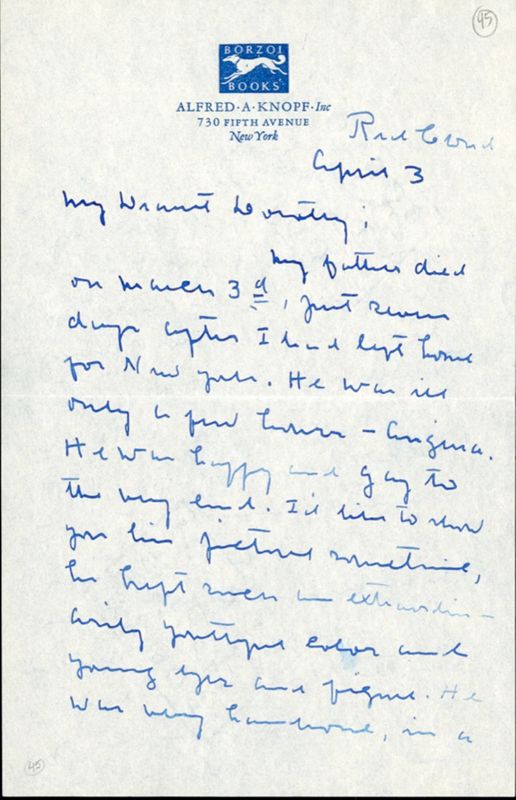 45
BORZOI
BOOKS
ALFRED · A · KNOPF · Inc
730 FIFTH AVENUE
New York
Red Cloud
April 3
My Dearest Dorothy;
My father died
on March 3d, just seven
days after I had left home
for New York. He was ill
only a few hours – angina.
He was happy and gay to
the very end. I'd like to show
you his picture sometime,
he kept such an extraordin-
arily youthful color and
young eyes and figure. He
was very handsome, in a
45